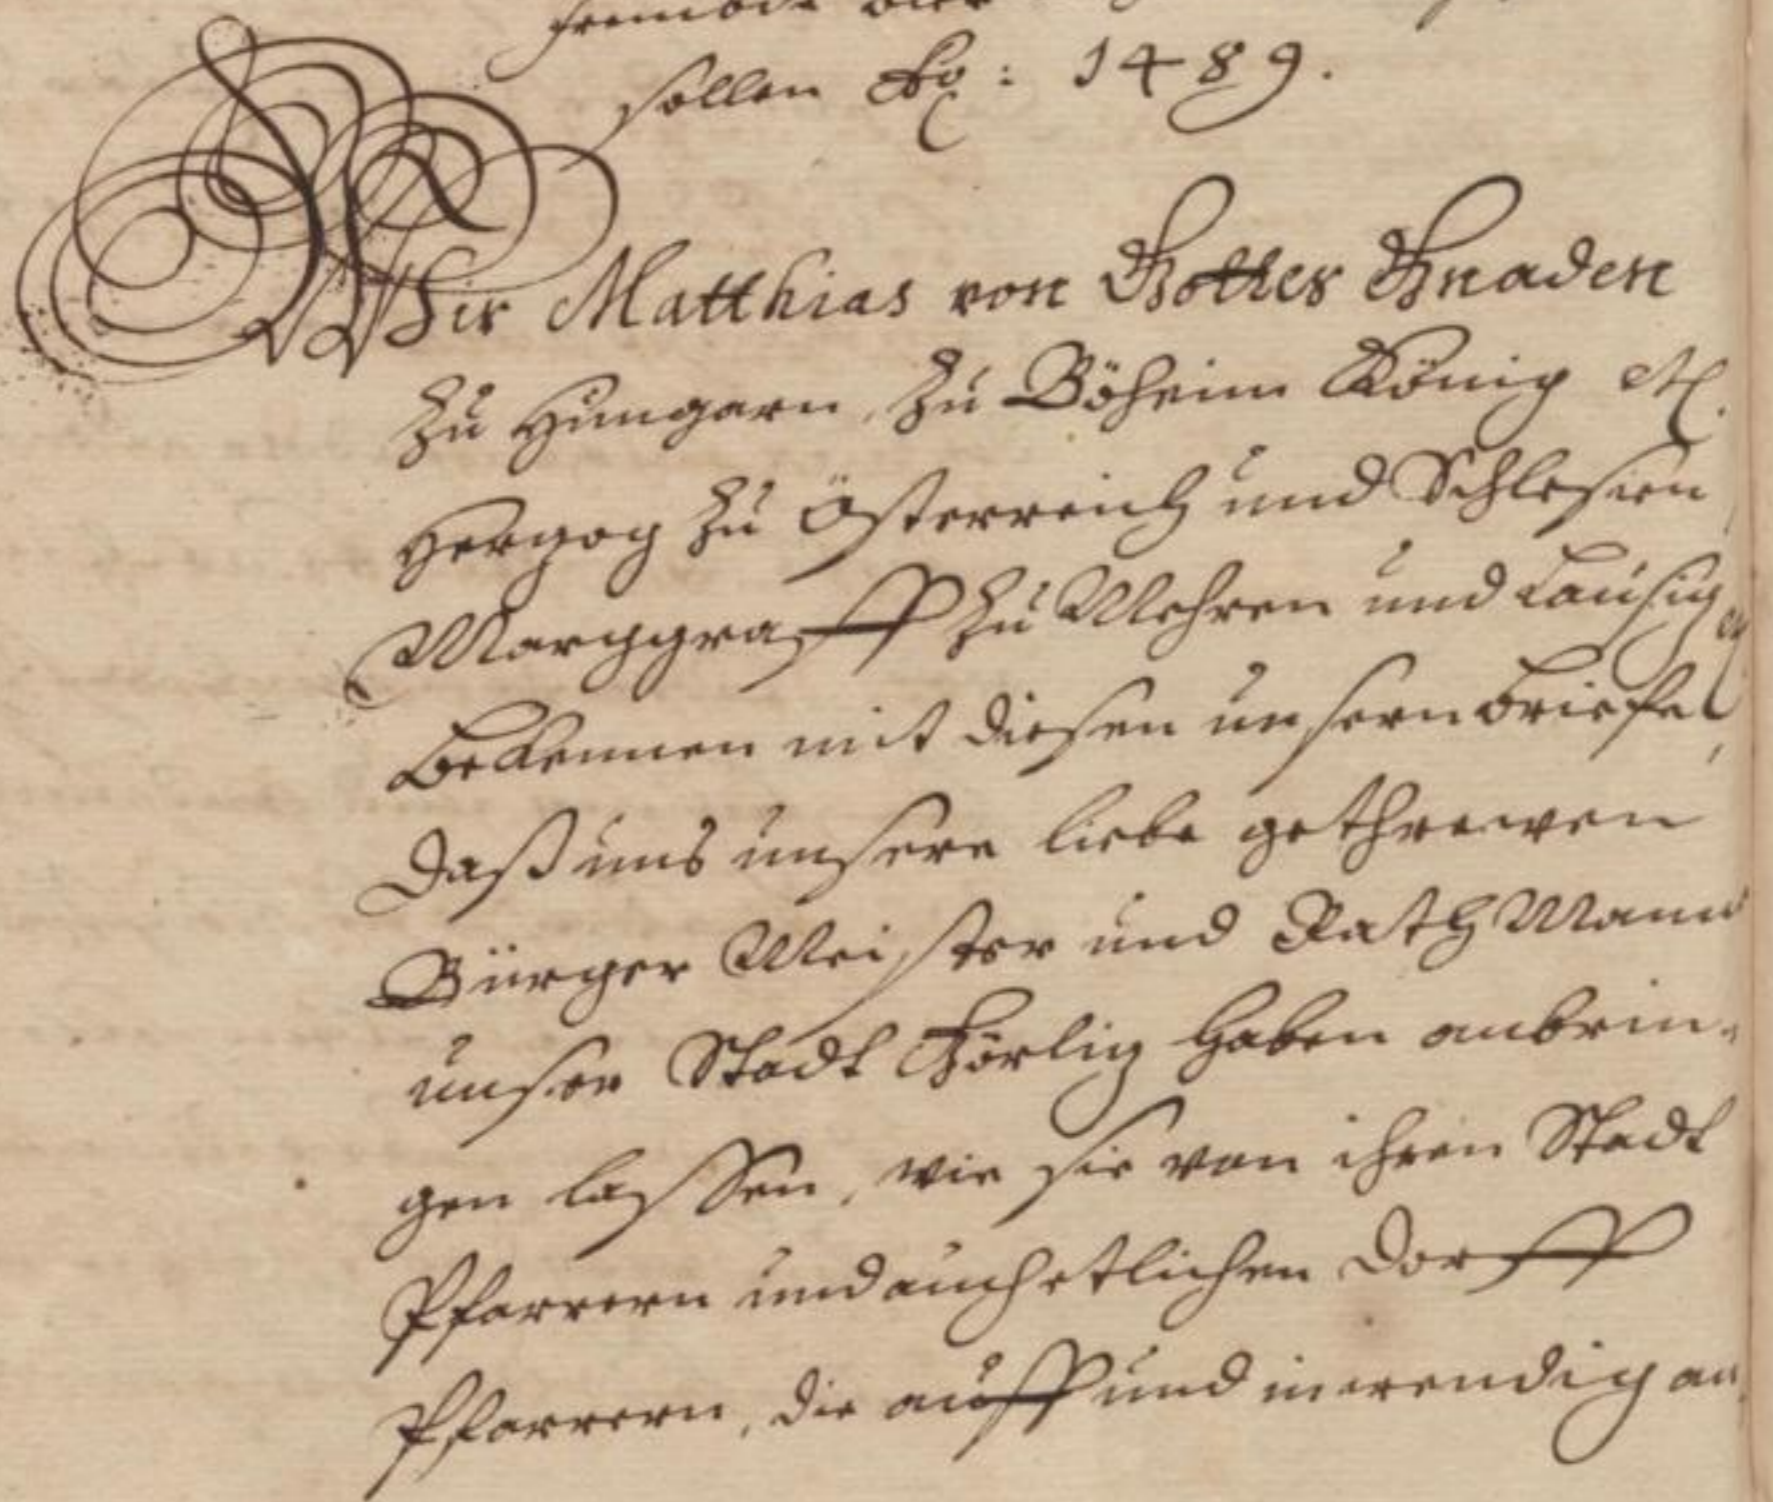 frembde Bier
sollen Ao: 1489.
Wir Matthias von Gottes Gnaden
Zu Hungarn, Zu Böheim König etc.
Herzog Zu Österreich und Schlesien
Marggraff Zu Mehren und Lausitz etc.
Bekennen mit diesen unsern Briefe,
Daß uns unsere liebe gethrewen
Bürger Meister und Rath Mann
unser Stadt Görlitz haben anbrin-
gen lassen, wie sie von ihren Stadt
Pfarrern und auch etlichen Dorff
Pfarrern, die auff und inwendig an